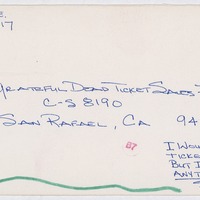 E.
17
GRATEFUL DEAD TICKET SALES-
C-S 8190
SAN RAFAEL, CA 94
87
I WOU
TICKE
BUT I
ANYT